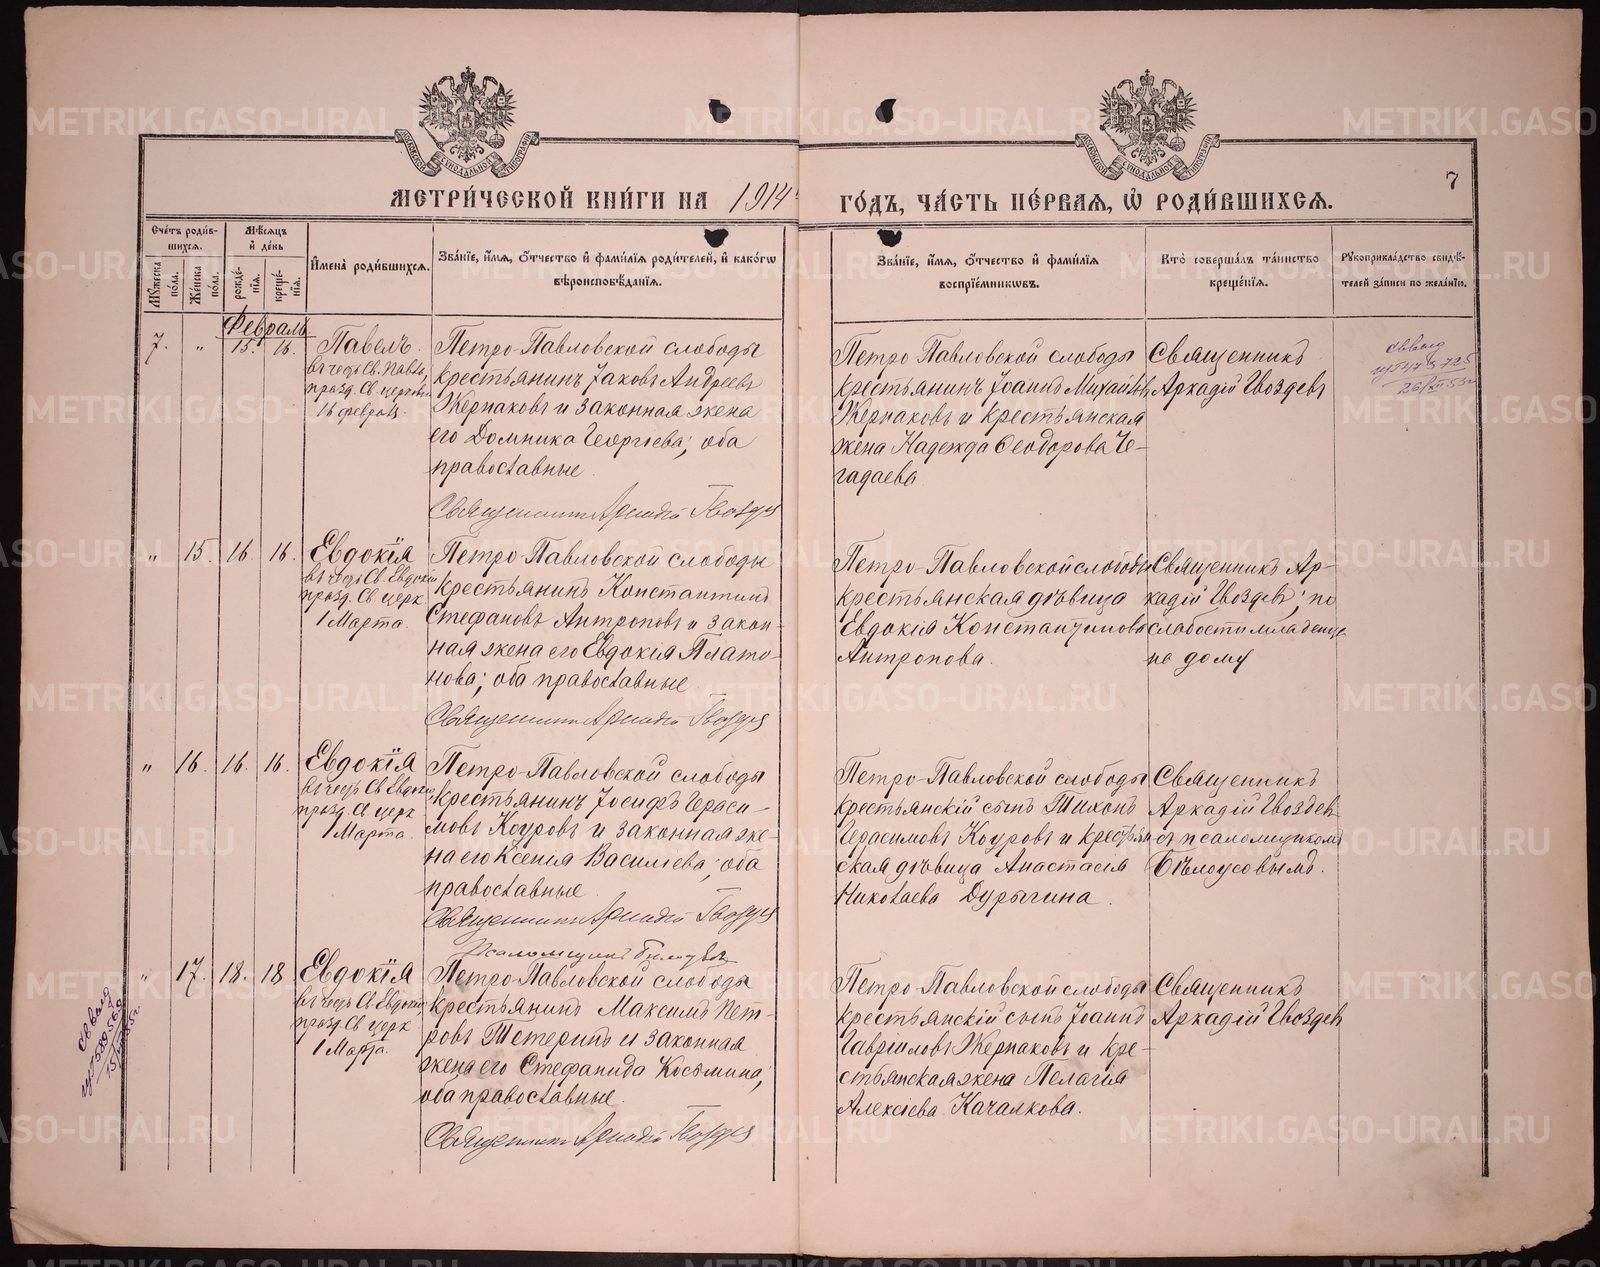 МЕТРИ́ЧЕСКОЙ КНИ́ГИ НА 1914 ГО́ДЪ, ЧА́СТЬ ПЕ́РВАЯ, Ѡ҆ РОДИ́ВШИХСЯ.
7
Сче́тъ роди́в-
шихся.
Мꙋ́жеска по́ла.
Же́нска по́ла.
Мѣ́сяцъ
и҆ де́нь
рожде́-
нїя.
креще́-
нїя.
И҆мена̀ роди́вшихся.
Зва́нїе, и҆́мя, ѻ҆́тчество и҆ фами́лїя роди́телей, и҆ како́гѡ
вѣ́роисповѣ́данїя.
Зва́нїе, и҆́мя, ѻ҆́тчество и҆ фами́лїя
воспрїе́мникѡвъ.
Кто̀ соверша́лъ та́инство
креще́нїя.
Рꙋкоприкла́дство свидѣ́-
телей за́писи по жела́нїю.
Февраль
7. „ 15. 16.
Павелъ
въ честь Св. Павла,
празд. Св. церковью
16 февраля.
Петро-Павловской слободы
крестьянинъ Іаковъ Андреевъ
Жернаковъ и законная жена
его Домника Георгіева; оба
православные.
Священникъ Аркадій Гвоздевъ
Петро-Павловской слободы
крестьянинъ Іоаннъ Михайловъ
Жернаковъ и крестьянская
жена Надежда Ѳеодорова Че-
гадаева
Священникъ
Аркадій Гвоздевъ
„ 15. 16 16.
Евдокія
въ честь Св. Евдокіи
празд. Св. церк
1 Марта.
Петро-Павловской слободы
крестьянинъ Константинъ
Стефановъ Антроповъ и закон-
ная жена его Евдокія Плато-
нова; оба православные
Священникъ Аркадій Гвоздевъ
Петро-Павловской слободы
крестьянская дѣвица
Евдокія Константинова
Антропова.
Священникъ Ар-
кадій Гвоздевъ; по
слабости младенца
на дому
„ 16. 16. 16.
Евдокія
въ честь Св. Евдокіи,
празд. Св. церк
1 Марта.
Петро-Павловской слободы
крестьянинъ Іосифъ Гераси-
мовъ Коуровъ и законная же-
на его Ксенія Васильева; оба
православные.
Священникъ Аркадій Гвоздевъ
Псаломщикъ Бѣлоусовъ
Петро-Павловской слободы
крестьянскій сынъ Тихонъ
Герасимовъ Коуровъ и крестьян
ская дѣвица Анастасія
Николаева Дурыгина.
Священникъ
Аркадій Гвоздевъ
съ псаломщикомъ
Бѣлоусовымъ.
„ 17. 18. 18
Евдокія
въ честь Св. Евдокіи,
празд. Св. церк
1 Марта.
Петро-Павловской слободы
крестьянинъ Максимъ Пет-
ровъ Тетеринъ и законная
жена его Стефанида Косьмина;
оба православные.
Священникъ Аркадій Гвоздевъ
Петро-Павловской слободы
крестьянскій сынъ Іоаннъ
Гавріиловъ Жернаковъ и кре-
стьянская жена Пелагія
Алексіева Качалкова.
Священникъ
Аркадій Гвоздевъ
METRIKI.GASO-URAL.RU